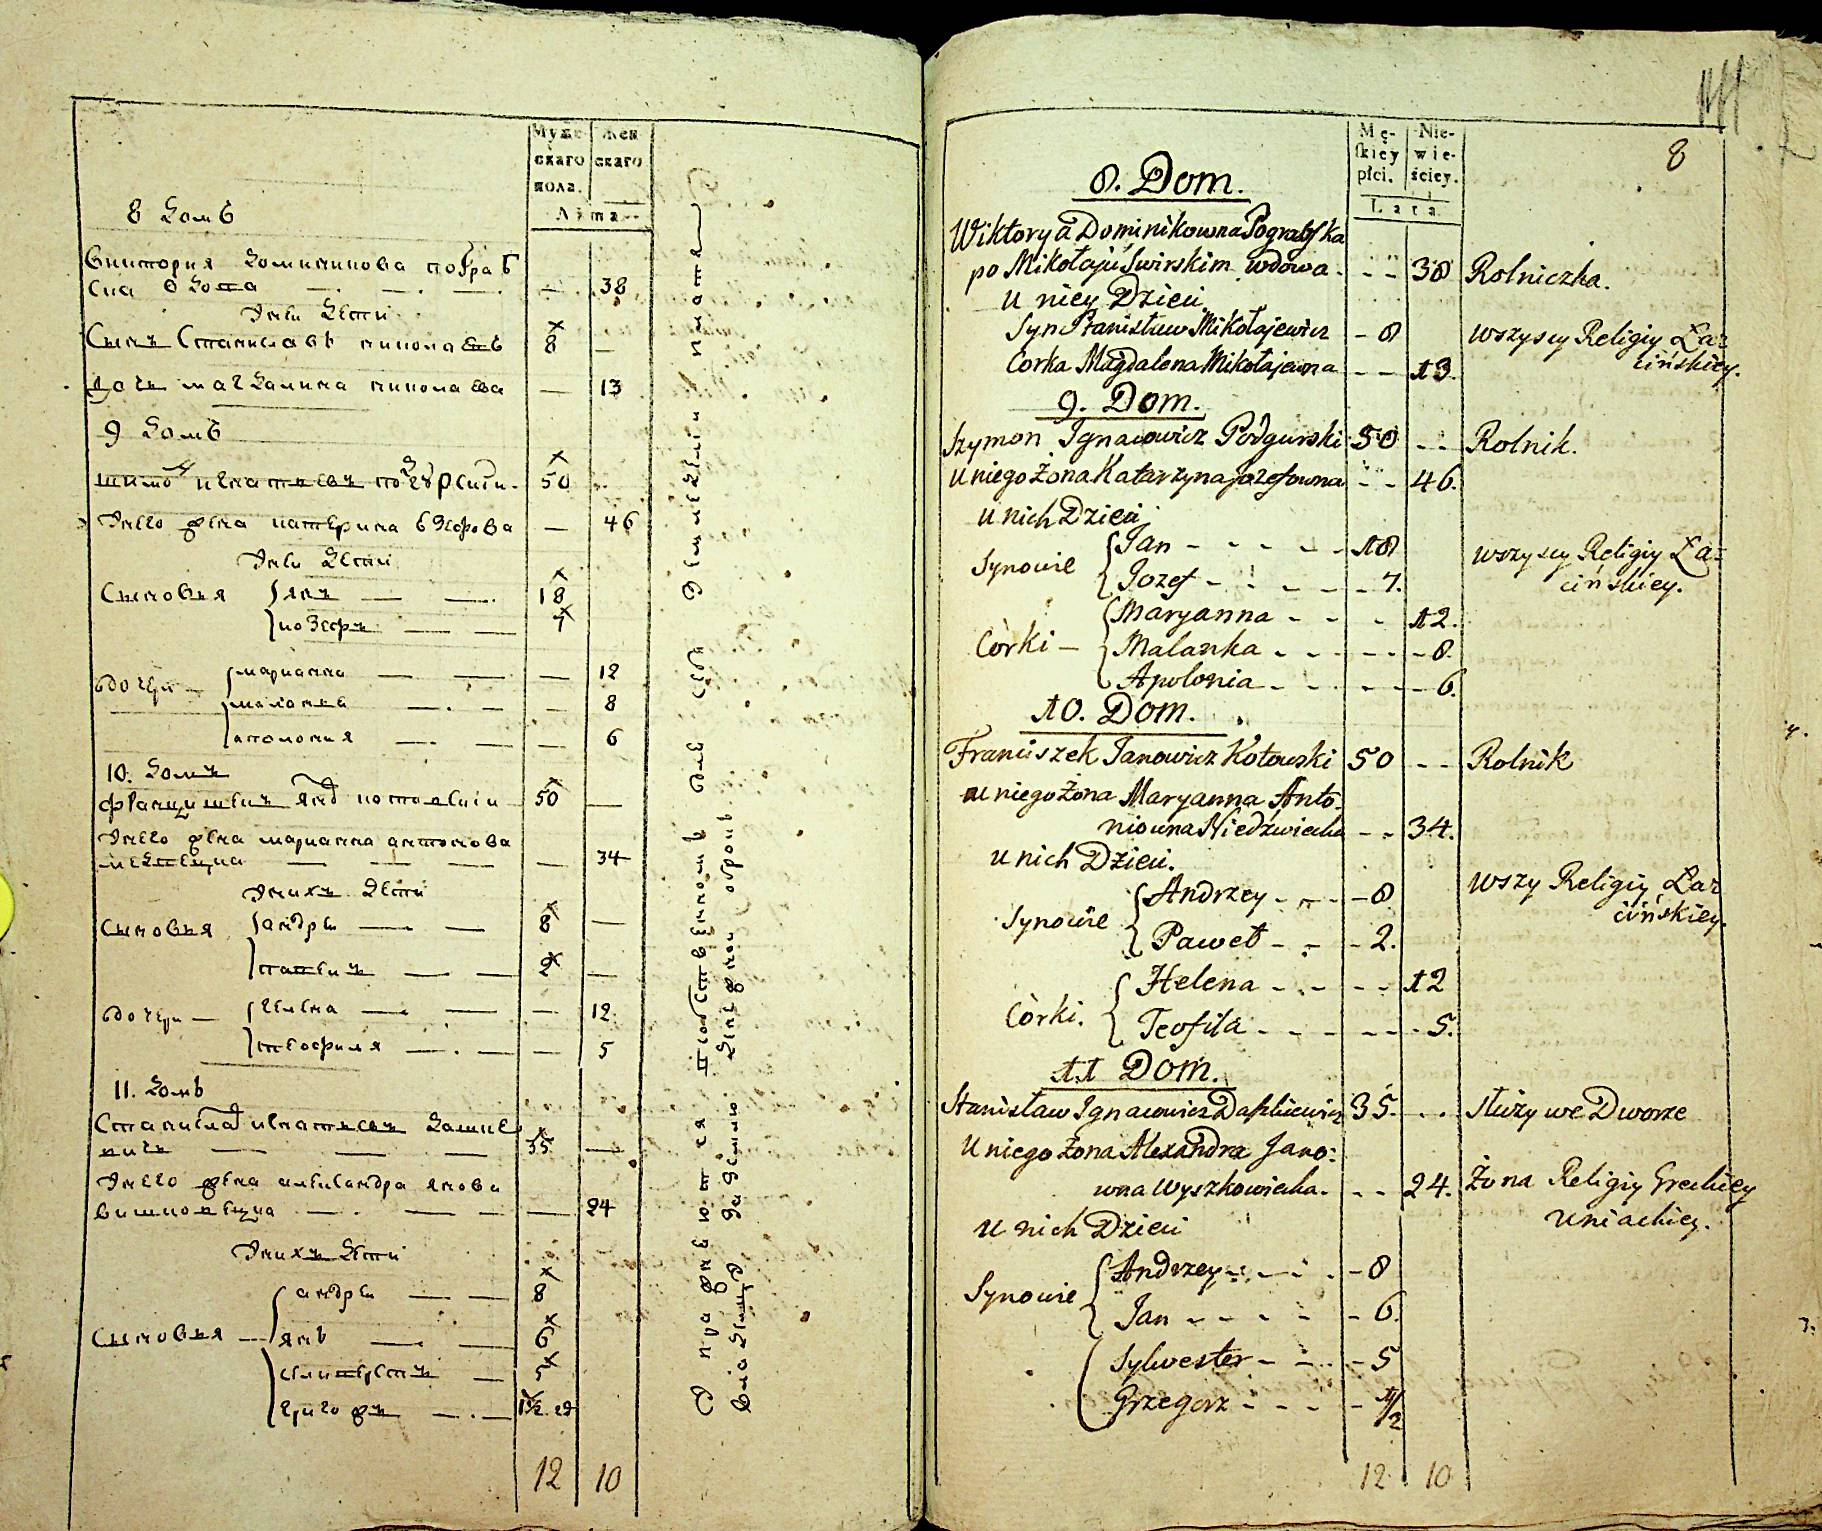 Муже-
скаго
пола.
Жен
скаго
Лѣта
8 Домъ
Виктория Доминикова пограб
ска вдова — — — — 38
У ней Дѣти
Сынъ Станиславъ николаевъ 8 —
дочь магдалина николаева — 13
9 Домъ
шимо игнатьевъ подгурски. 50
У него жена катерина езефова — 46
У ней Дѣти
Сыновья { янъ — — 18
иозефъ — — 7
дочери — { марианна — — — 12
маланья — . — — 8
аполония — — — 6
10. Домъ
францишекъ яно котовский 50 —
У него жена марианна антонова
— — — — 34
У нихъ Дети
Сыновья { андрей — — 8 —
павелъ — — 2 —
дочери — { елена — — — 12
теофиля — . — — 5
11. Домъ
Станисла игнатьевъ Дашке
вичь — — — 35 —
У него жена александра янова
вишковецка — . — — — 24
У нихъ Дѣти
андрей — — 8
Сыновья — янъ — — 6
силвестръ — — 5
григоръ — . — 1/2
12 10
Mę-
skiey
płci.
Nie-
wie-
ściey.
Lata
8
8. Dom.
Wiktorya Dominikowna Pograbska
po Mikołaju Swirskim wdowa - - - 38 Rolniczka.
U niey Dzieci
Syn Stanisław Mikołajewicz - 8 wszyscy Religiy Ła=
Corka Magdalena Mikołajewna - - 13. cińskiey.
9. Dom.
Szymon Ignacowicz Podgurski 50 - - Rolnik.
U niego Żona Katarzyna Jozefowna - - 46.
U nich Dzieci
Synowie { Jan - - - - - 18 wszyscy Religiy Ła=
Jozef - - - - - 7. cińskiey.
Còrki — { Maryanna - - - 12.
Malanka - - - - - - 8.
Apolonia - - - - - - 6.
10. Dom.
Franciszek Janowicz Kotowski 50 - - Rolnik
u niego Żona Maryanna Anto-
niowna Niedzwiecka - - 34.
u nich Dzieci.
Synowie { Andrzey - - - - 8 wszy Religiy Ła=
Paweł - - - 2. cińskiey.
Còrki. { Helena - - - - - 12
Teofila - - - - - - 5.
11 Dom.
Stanisław Ignacowicz Daszkiewicz 35. - - Służy we Dworze
U niego Żona Alexandra Jano=
wna Wyszkowiecka. - - 24. Żona Religiy Greckiey
Uniackiey.
U nich Dzieci
Synowie { Andrzey - - - - 8
Jan - - - - - 6.
Sylwester - - - - 5
Grzegorz - - - - 1/2
12 10